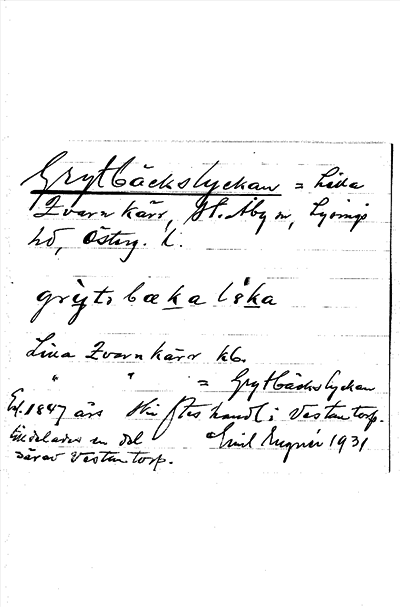 Grytbäckslyckan = Lilla
Kvarnkärr, St. Åby sn, Lysings
hd, Österg. l.
grỳtsbæka lᶒka
Lilla Kvarnkärr kb.
" " = Grytbäckslyckan
Enl. 1847 års skifteshandl. i Västantorp.
tilldelades en del
därav Västantorp. Emil Engnér 1931